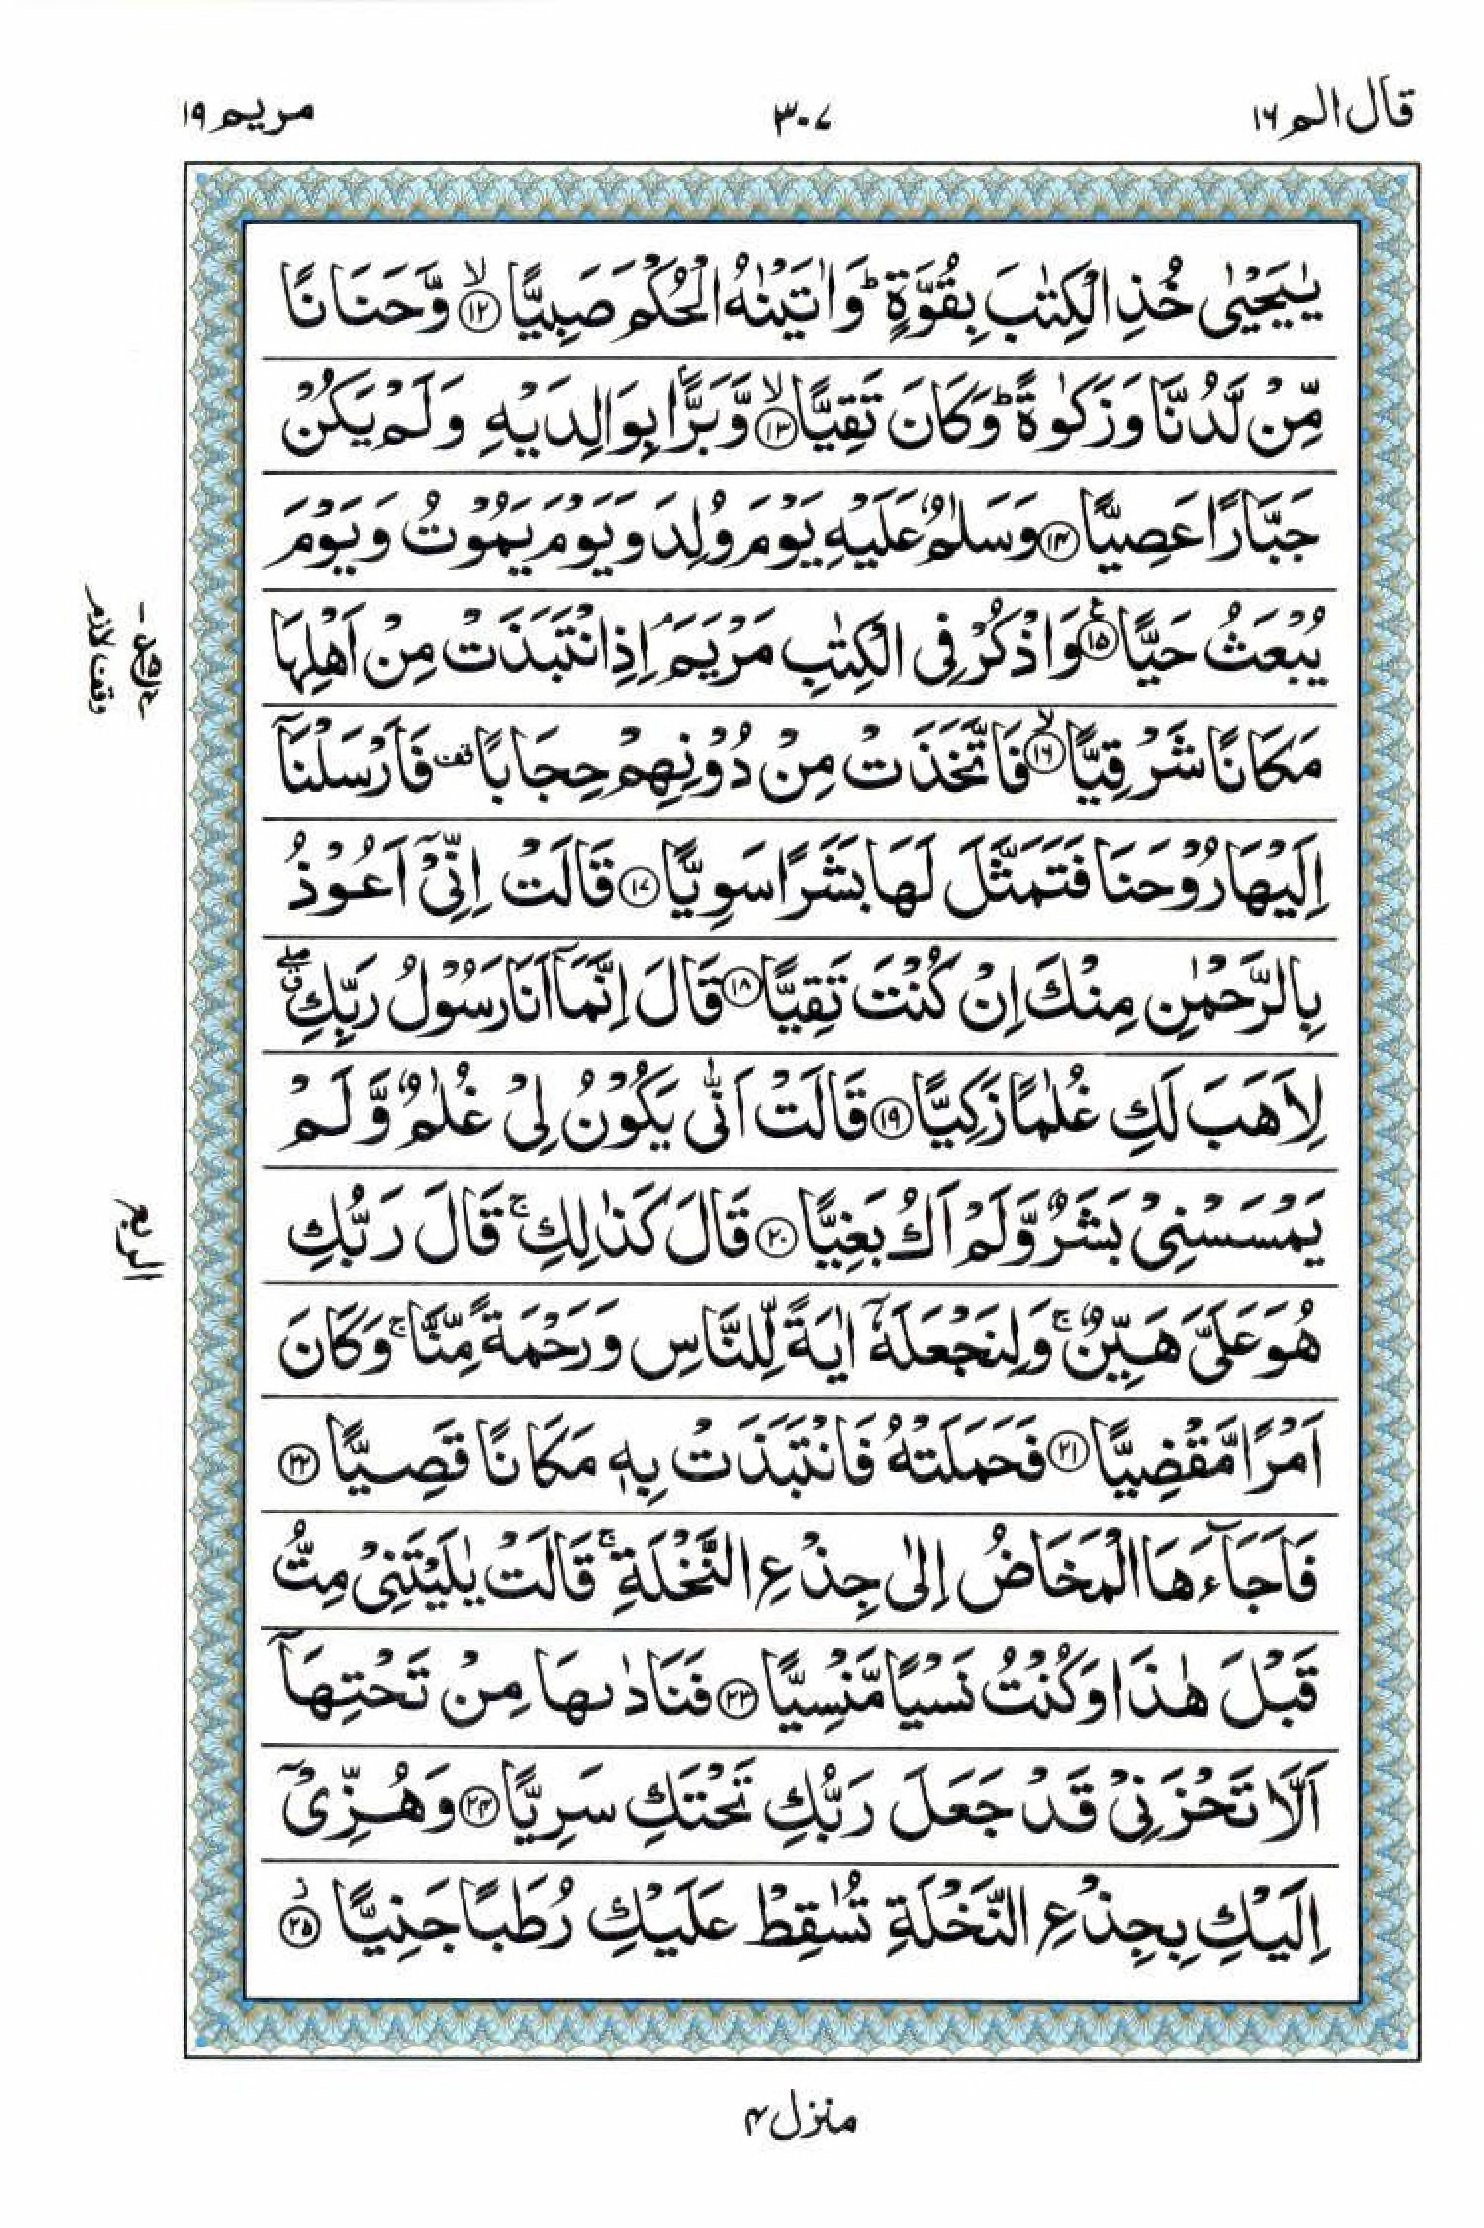 قال الم ١٦ ٣٠٧ مريم ١٩
يٰيَحْيٰى خُذِ الْكِتٰبَ بِقُوَّةٍ ؕ وَاٰتَيْنٰهُ الْحُكْمَ صَبِيًّا ۙ﴿١٢﴾ وَّحَنَانًا
مِّنْ لَّدُنَّا وَزَكٰوةً ؕ وَكَانَ تَقِيًّا ۙ﴿١٣﴾ وَّبَرًّۢا بِوَالِدَيْهِ وَلَمْ يَكُنْ
جَبَّارًا عَصِيًّا ﴿١٤﴾ وَسَلٰمٌ عَلَيْهِ يَوْمَ وُلِدَ وَيَوْمَ يَمُوْتُ وَيَوْمَ
يُبْعَثُ حَيًّا ﴿١٥﴾ۧ وَاذْكُرْ فِى الْكِتٰبِ مَرْيَمَ ۘ اِذِ انْتَبَذَتْ مِنْ اَهْلِهَا
وقف لازم
مَكَانًا شَرْقِيًّا ۙ﴿١٦﴾ فَاتَّخَذَتْ مِنْ دُوْنِهِمْ حِجَابًا قف فَاَرْسَلْنَاۤ
اِلَيْهَا رُوْحَنَا فَتَمَثَّلَ لَهَا بَشَرًا سَوِيًّا ﴿١٧﴾ قَالَتْ اِنِّىْۤ اَعُوْذُ
بِالرَّحْمٰنِ مِنْكَ اِنْ كُنْتَ تَقِيًّا ﴿١٨﴾ قَالَ اِنَّمَاۤ اَنَا رَسُوْلُ رَبِّكِ ۖق
لِاَهَبَ لَكِ غُلٰمًا زَكِيًّا ﴿١٩﴾ قَالَتْ اَنّٰى يَكُوْنُ لِىْ غُلٰمٌ وَّلَمْ
يَمْسَسْنِىْ بَشَرٌ وَّلَمْ اَكُ بَغِيًّا ﴿٢٠﴾ قَالَ كَذٰلِكِ ۚ قَالَ رَبُّكِ
الربع
هُوَ عَلَىَّ هَيِّنٌ ۚ وَلِنَجْعَلَهٗۤ اٰيَةً لِّلنَّاسِ وَرَحْمَةً مِّنَّا ۚ وَكَانَ
اَمْرًا مَّقْضِيًّا ﴿٢١﴾ فَحَمَلَتْهُ فَانْتَبَذَتْ بِهٖ مَكَانًا قَصِيًّا ﴿٢٢﴾
فَاَجَآءَهَا الْمَخَاضُ اِلٰى جِذْعِ النَّخْلَةِ ۚ قَالَتْ يٰلَيْتَنِىْ مِتُّ
قَبْلَ هٰذَا وَكُنْتُ نَسْيًا مَّنْسِيًّا ﴿٢٣﴾ فَنَادٰىهَا مِنْ تَحْتِهَاۤ
اَلَّا تَحْزَنِىْ قَدْ جَعَلَ رَبُّكِ تَحْتَكِ سَرِيًّا ﴿٢٤﴾ وَهُزِّىْۤ
اِلَيْكِ بِجِذْعِ النَّخْلَةِ تُسٰقِطْ عَلَيْكِ رُطَبًا جَنِيًّا ؗ﴿٢٥﴾
منزل ٤